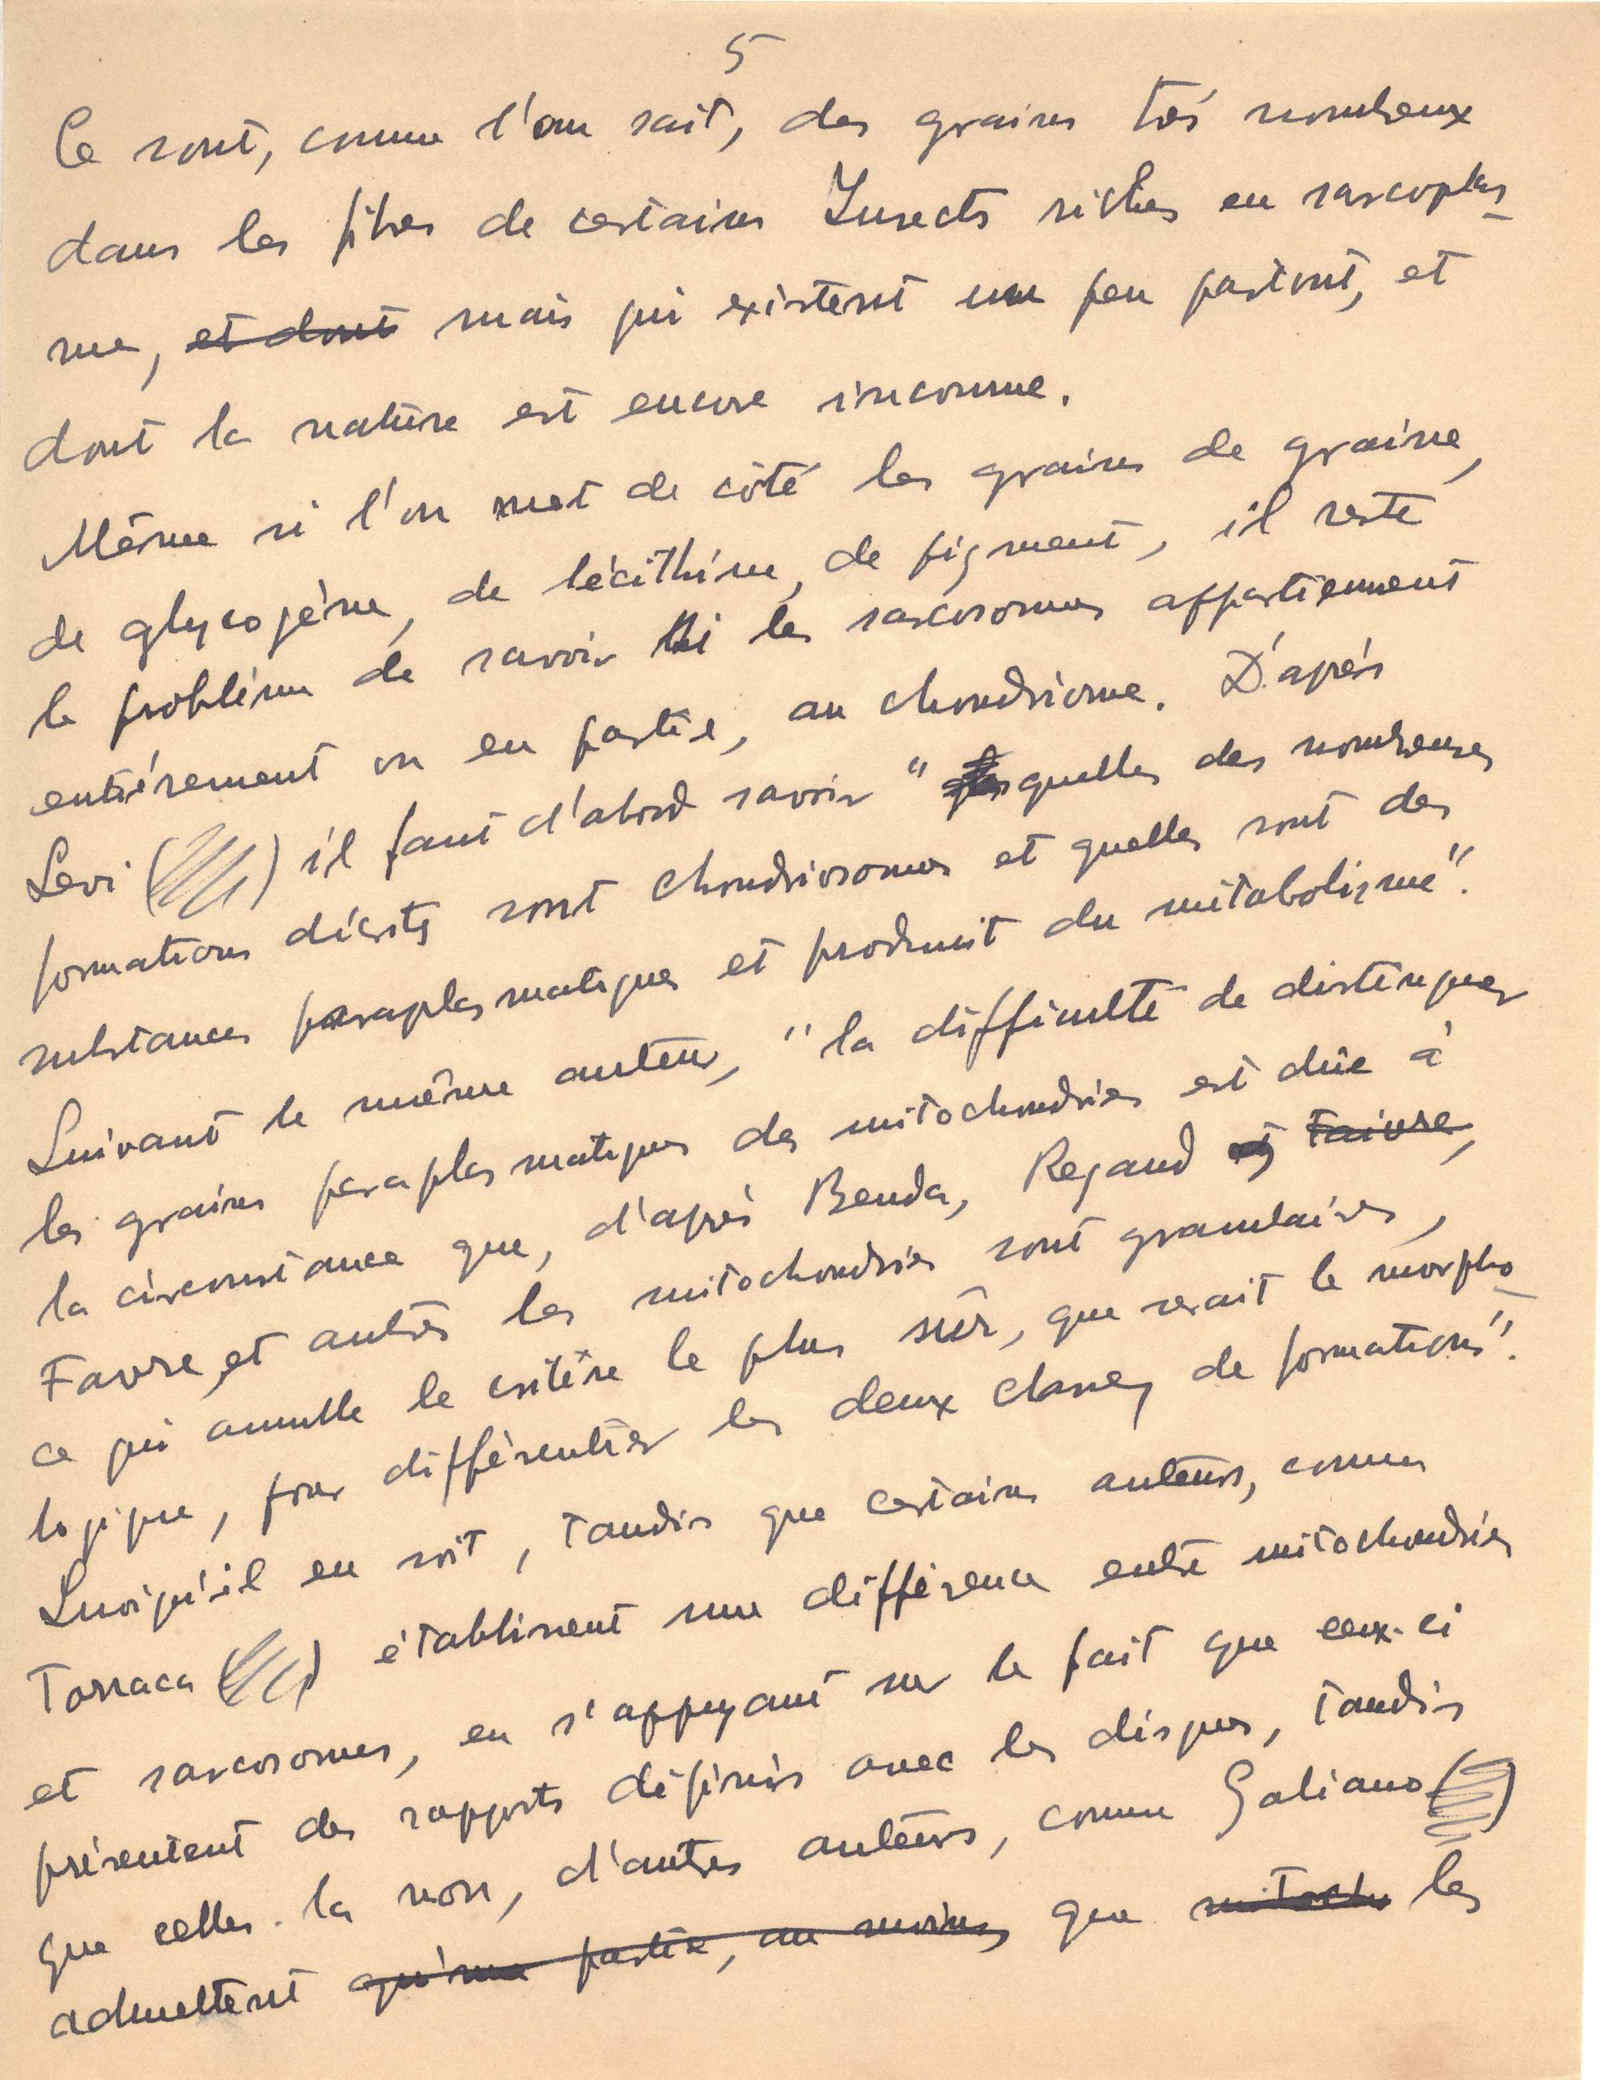 5
Ce sont, comme l'on sait, des grains très nombreux
dans les fibres de certains Insects riches en sarcoplas-
me, et dont mais qui existent un peu partout, et
dont la nature est encore inconnue.
Même si l'on met de côté les grains de graine,
de glycogène, de lécithine, de pigment, il reste
le problème de savoir si les sarcosomes appartiennent
entièrement ou en partie, au chondriome. D'après
Levi ( ) il faut d'abord savoir " quelles des nombreuses
formations décrits sont chondriosomes et quelles sont des
substances paraplasmatiques et produit du métabolisme".
Suivant le même auteur, "la difficulté de distinguer
les grains paraplasmatiques des mitochondries est dûe à
la circonstance que, d'après Benda, Regaud et Faivre,
Favre, et autres les mitochondries sont granulaires,
ce qui annulle le critère le plus sûr, que serait le morpho-
logique, pour différentier les deux classes de formations".
Quoiqu'il en soit, tandis que certains auteurs, comme
Torraca ( ) établissent une différence entre mitochondries
et sarcosomes, en s'appuyant sur le fait que ceux-ci
présentent des rapports définis avec les disques, tandis
que celles-la non, d'autres auteurs, comme Galiano ( )
admettent qu'une partie, au moins que mitoch les